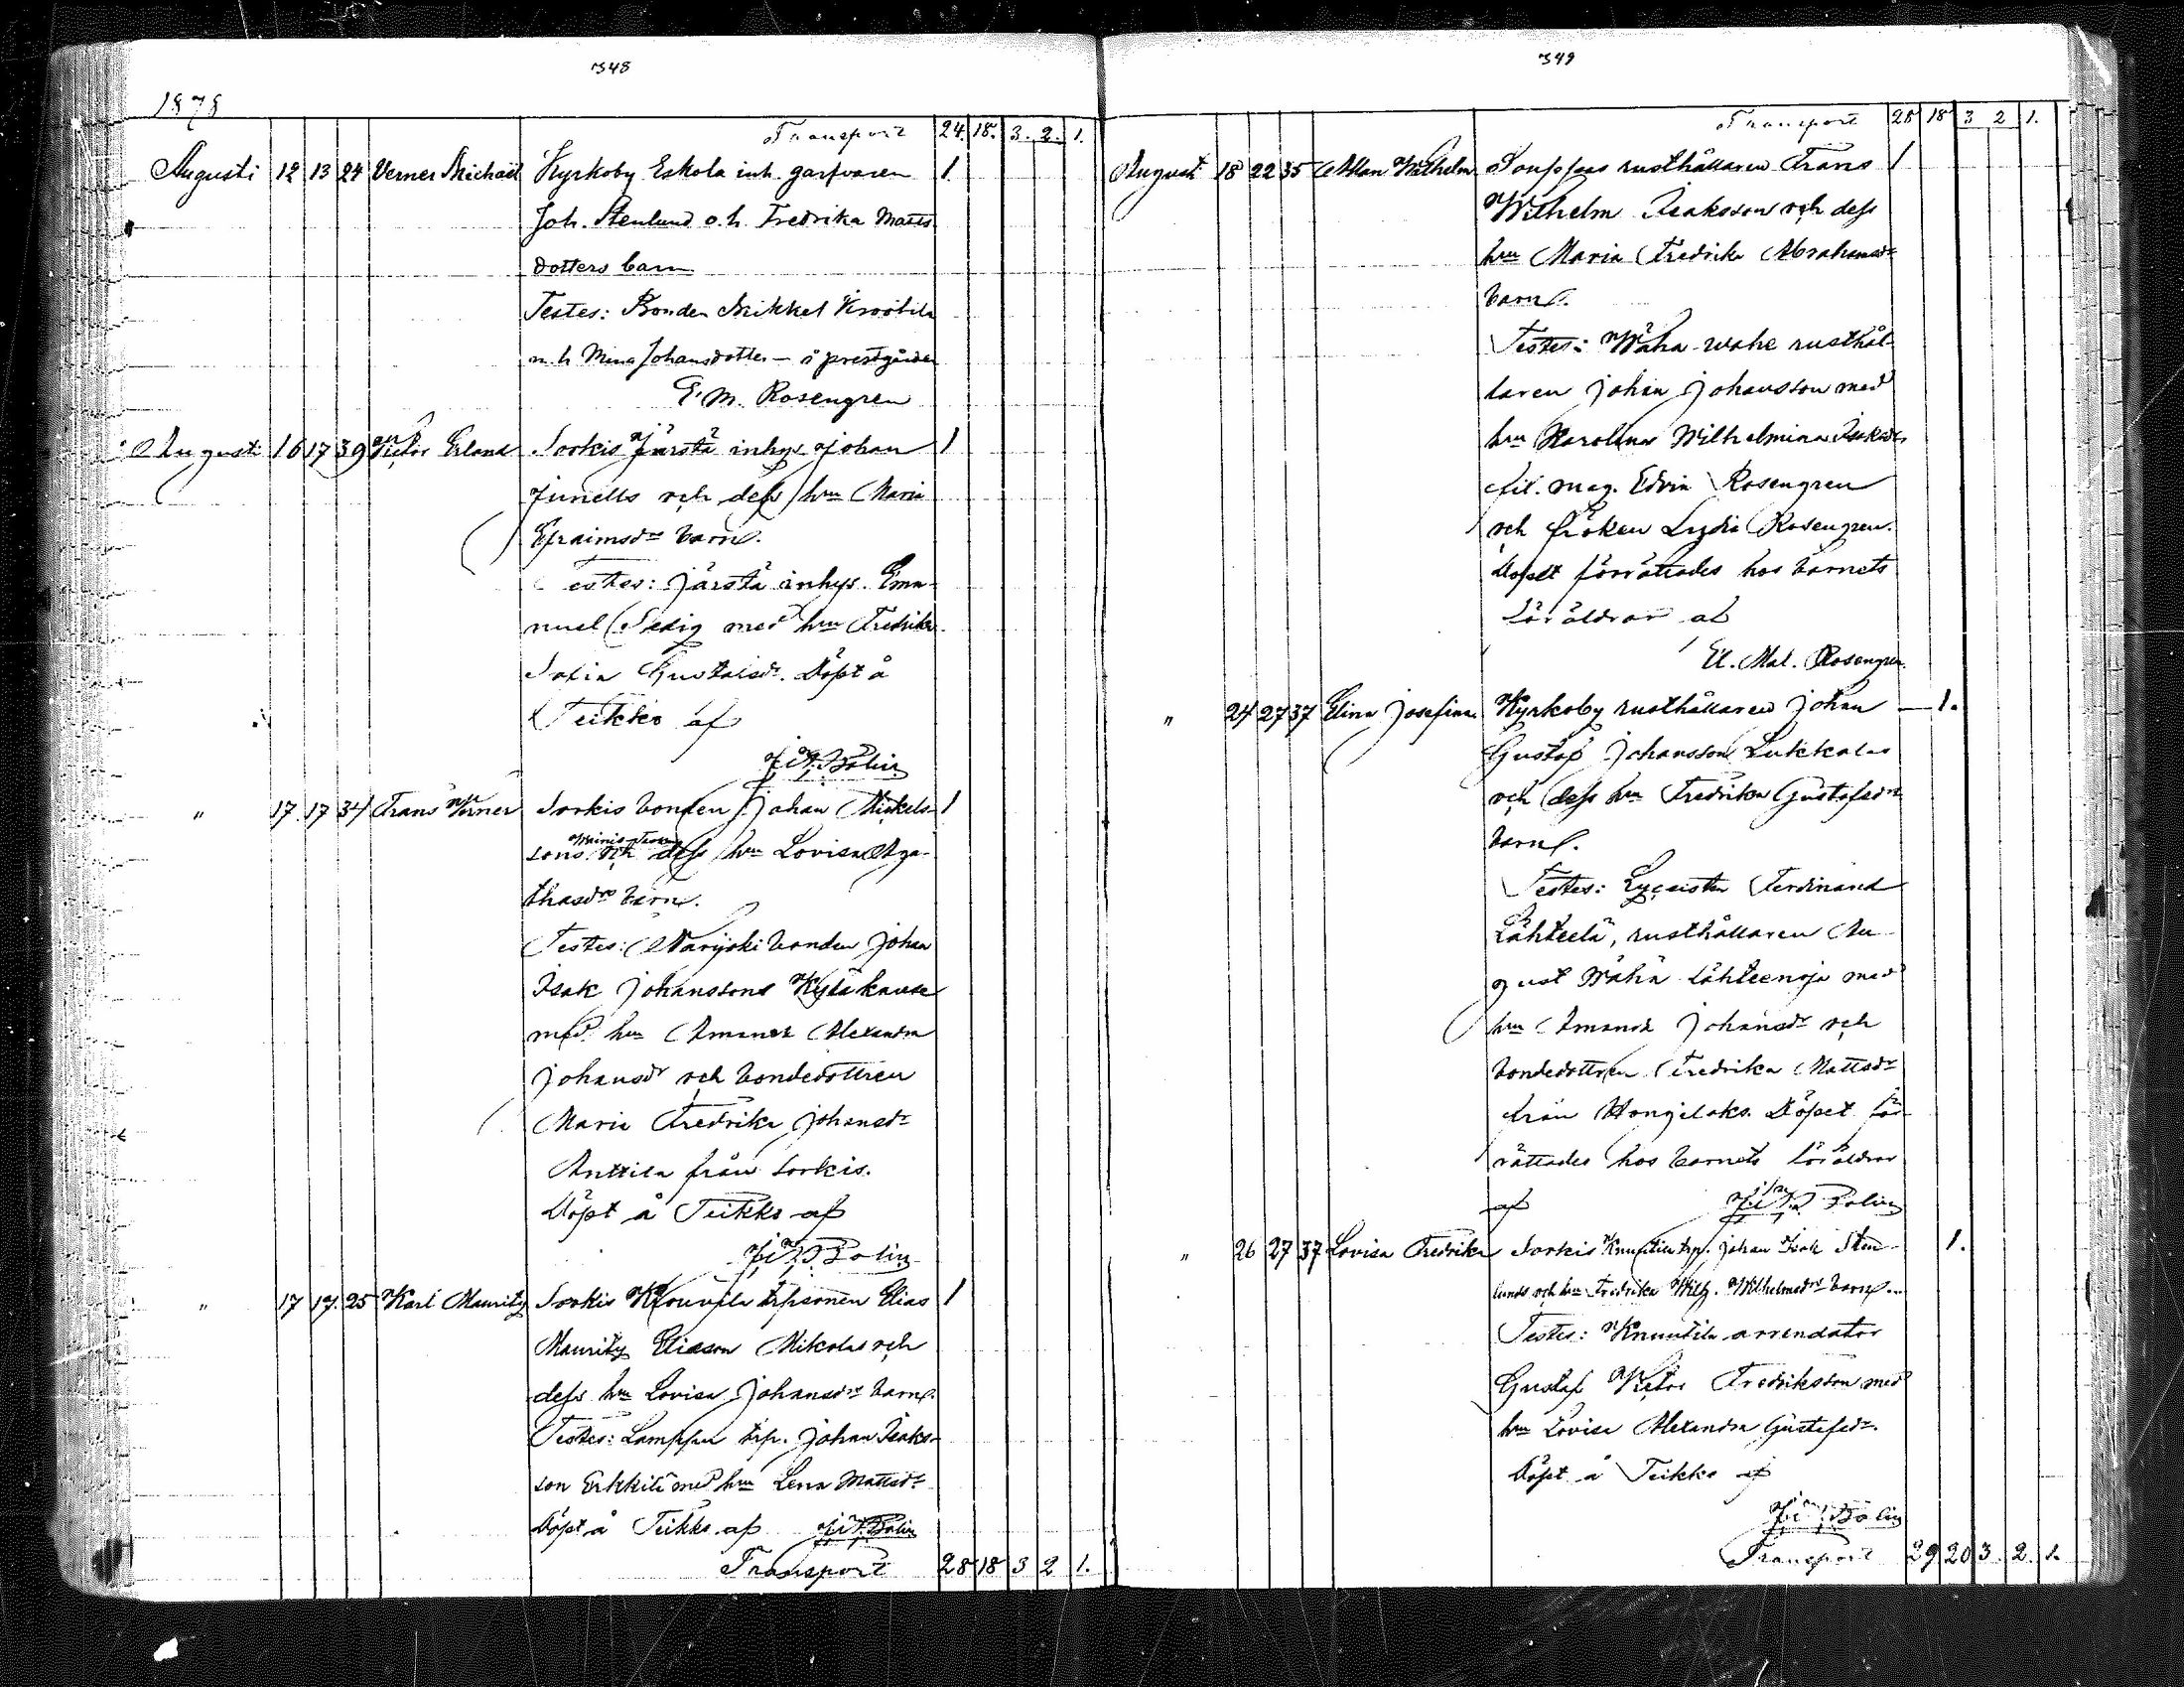 348
1878
Transport 24. 18. 3. 2. 1.
Augusti 12 13 24 Verner Michaël Kyrkoby Eskola inh. garfvaren 1
Joh. Stenlund o. h. Fredrika Matts
dotters barn
Testes: Bonden Mikkel Krootila
m. h. Mina Johansdotter — å prestgården
E. M. Rosengren
Augusti 16 17 39 Victor Erland Sorkis Järstä inhys Johan 1
Junells och dess hru Maria
Efraimsdr barn.
Testes: Järstä inhys. Ema-
nuel Sedig med hru Fredrika
Sofia Gustafsdr. Döpt å
Teikko af
Bolin
" 17 17 34 Frans Verner Sorkis bonden Johan Mickels- 1
sons och dess hru Lovisa Aga-
thasdrs barn.
Testes: Narijoki bonden Johan
Isak Johanssons Kylä
med hru Amanda Alexandra
Johansdr och bondedottren
Maria Fredrika Johansdr
Anttila från Sorkis.
Döpt å Teikko af
Bolin
" 17 17. 25 Karl Mauritz Sorkis Krouvila trpsonen Elias 1
Mauritz Eliason Mikolas och
dess hru Lovisa Johansdrs barn.
Testes: Lamppu trp. Johan Isaks-
son Erkkilä med hru Lena Mattsdr
Döpt å Teikko af Bolin
Transport 28 18 3 2 1.
349
Transport 28 18 3 2 1.
August 18 22 35 Allan Wilhelm rusthållaren Frans 1
Wilhelm Isaksson och dess
hru Maria Fredrika Abrahamsdr
barn.
Testes: Wäha-wahe rusthål-
laren Johan Johansson med
hru Karolina Wilhelmina Isaksdr,
fil. mag. Edvin Rosengren
och fröken Lydia Rosengren.
Dopet förrättades hos barnets
föräldrar af
El. Mal. Rosengren.
" 24 27 37 Elina Josefina Kyrkoby rusthållaren Johan — 1.
Gustaf Johansson Lukkalas
och dess hru Fredrika Gustafsdrs
barn.
Testes: Lyceisten Ferdinand
Lähteelä, rusthållaren Au-
gust Wähä Lähteenoja med
hru Amanda Johansdr och
bondedottren Fredrika Mattsdr
från Hongiloks. Döpet för-
rättades hos barnets föräldrar
af Bolin
" 26 27 37 Lovisa Fredrika Sorkis Knuutila trp. Johan Isak Sten- 1.
lunds och hru Fredrika Wilh. Wilhelmsdrs barn.
Testes: Knuutila arrendator
Gustaf Victor Fredriksson med
hru Lovisa Alexandra Gustafsdr.
Döpt å Teikko af
Bolin
Transport 29 20 3. 2. 1.